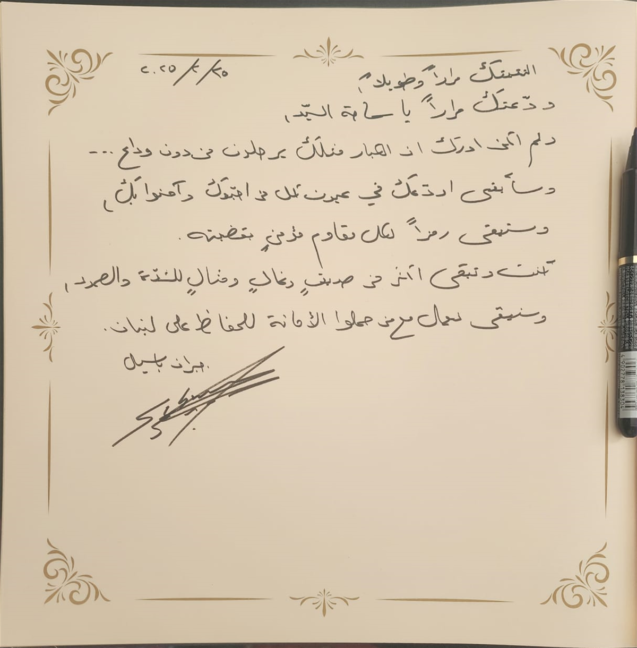 ٢٠٢٥/٢/٢٥
التقيتك مراراً وطويلاً،
ودّعتك مراراً يا سماحة السيّد،
ولم أكن أدرك أن الكبار مثلك يرحلون من دون وداع ...
وسأبقى أودّعك في عيون كل من أحبّوك وآمنوا بك،
وستبقى رمزاً لكل مقاوم مؤمنٍ بقضيته.
كنت وتبقى أكثر من صديقٍ وغالٍ ومثالٍ للشدّة والصمود،
وسنبقى نعمل مع من حملوا الأمانة للحفاظ على لبنان.
جبران باسيل